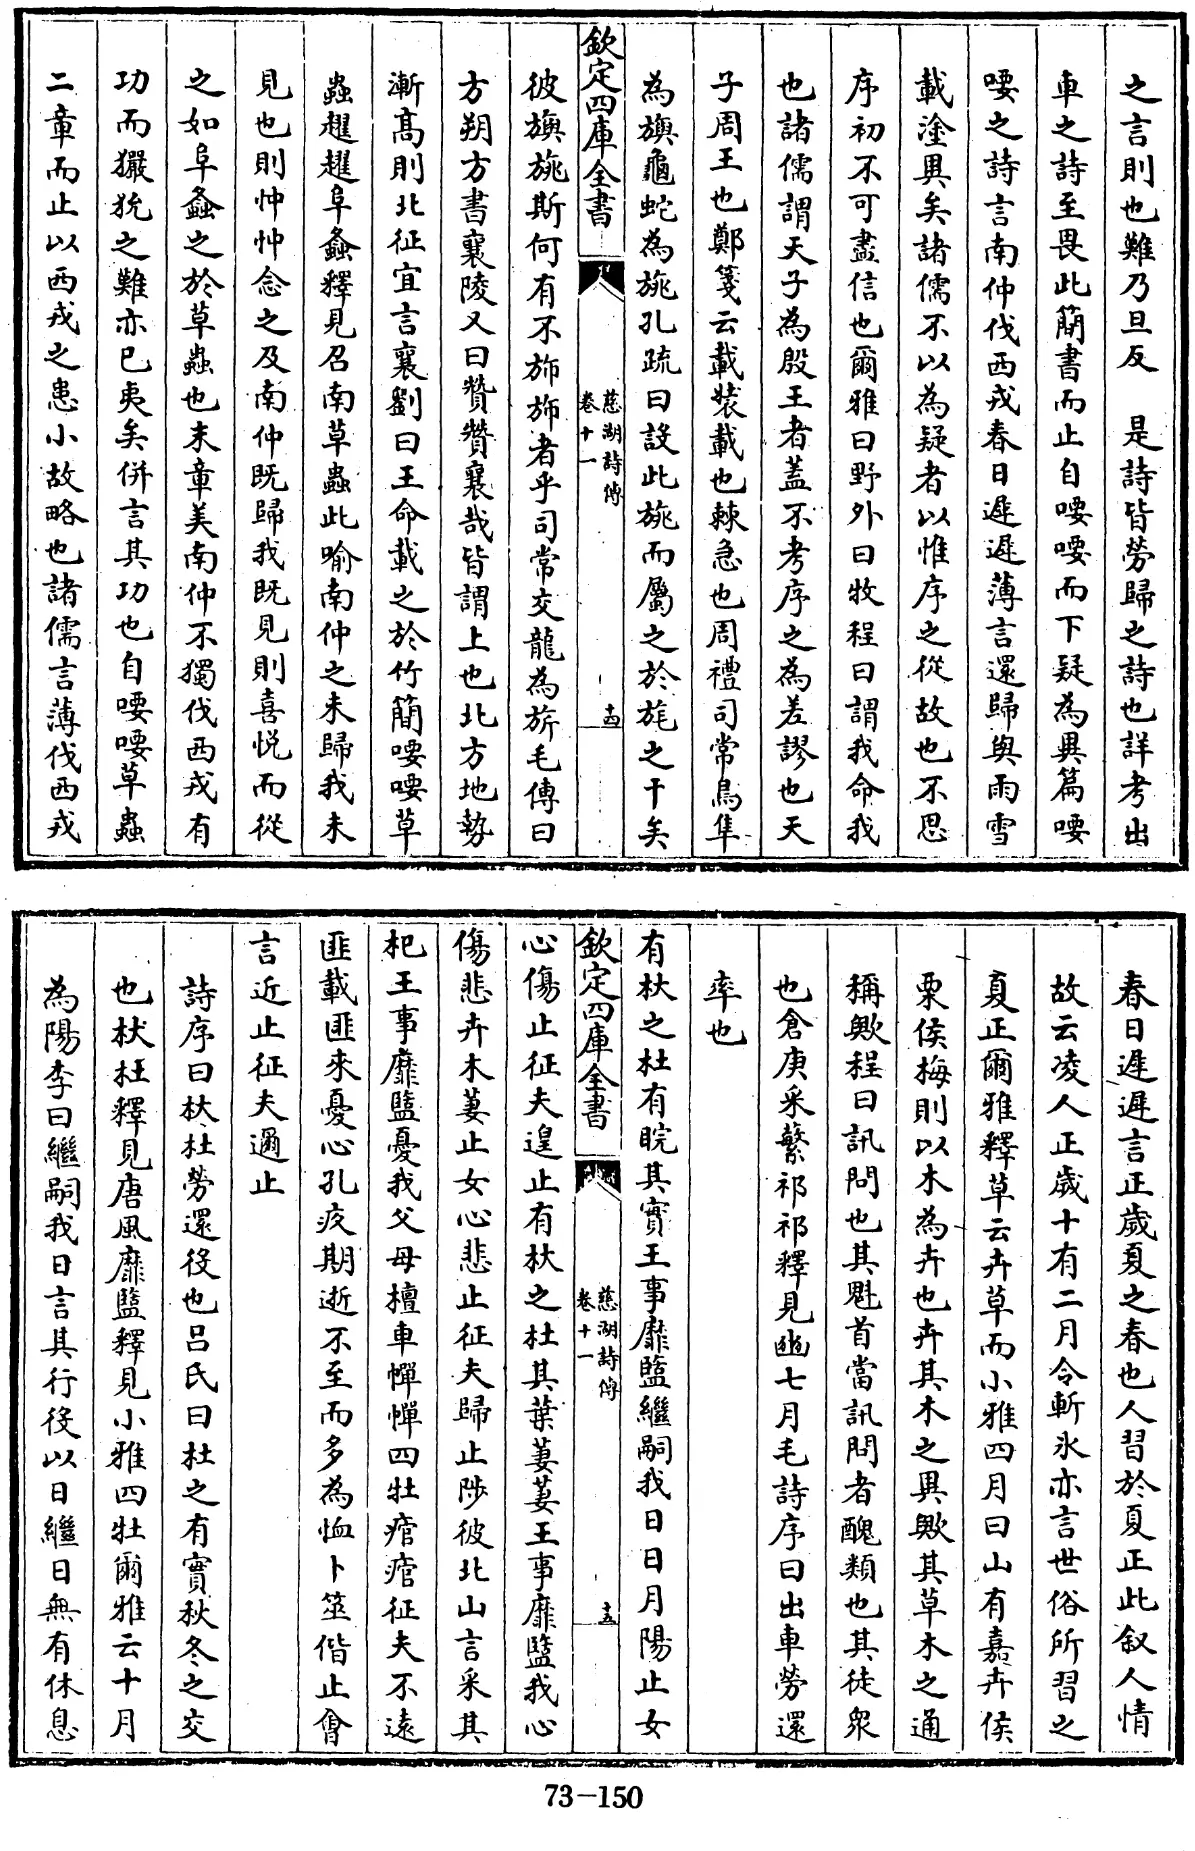 之言則也難乃旦反　是詩皆勞歸之詩也詳考出
車之詩至畏此簡書而止自喓喓而下疑為異篇喓
喓之詩言南仲伐西戎春日遲遲薄言還歸與雨雪
載塗異矣諸儒不以為疑者以惟序之從故也不思
序初不可盡信也爾雅曰野外曰牧程曰謂我命我
也諸儒謂天子為殷王者蓋不考序之為差謬也天
子周王也鄭箋云載裝載也棘急也周禮司常鳥隼
為旟龜蛇為旐孔疏曰設此旐而屬之於旄之干矣
欽定四庫全書
慈湖詩傳
卷十一
十四
彼旟旐斯何有不斾斾者乎司常交龍為旂毛傳曰
方朔方書襄陵又曰贊贊襄哉皆謂上也北方地勢
漸高則北征宜言襄劉曰王命載之於竹簡喓喓草
蟲趯趯阜螽釋見召南草蟲此喻南仲之未歸我未
見也則忡忡念之及南仲既歸我既見則喜悅而從
之如阜螽之於草蟲也末章美南仲不獨伐西戎有
功而玁狁之難亦已夷矣併言其功也自喓喓草蟲
二章而止以西戎之患小故略也諸儒言薄伐西戎
春日遲遲言正歲夏之春也人習於夏正此叙人情
故云凌人正歲十有二月令斬氷亦言世俗所習之
夏正爾雅釋草云卉草而小雅四月曰山有嘉卉侯
栗侯梅則以木為卉也卉其木之異歟其草木之通
稱歟程曰訊問也其魁首當訊問者醜類也其徒衆
也倉庚采蘩祁祁釋見豳七月毛詩序曰出車勞還
率也
有杕之杜有睆其實王事靡盬繼嗣我日日月陽止女
欽定四庫全書
慈湖詩傳
卷十一
十五
心傷止征夫遑止有杕之杜其葉萋萋王事靡盬我心
傷悲卉木萋止女心悲止征夫歸止陟彼北山言采其
杞王事靡盬憂我父母檀車幝幝四牡痯痯征夫不遠
匪載匪來憂心孔疚期逝不至而多為恤卜筮偕止會
言近止征夫邇止
詩序曰杕杜勞還役也呂氏曰杜之有實秋冬之交
也杕杜釋見唐風靡盬釋見小雅四牡爾雅云十月
為陽李曰繼嗣我日言其行役以日繼日無有休息
73-150